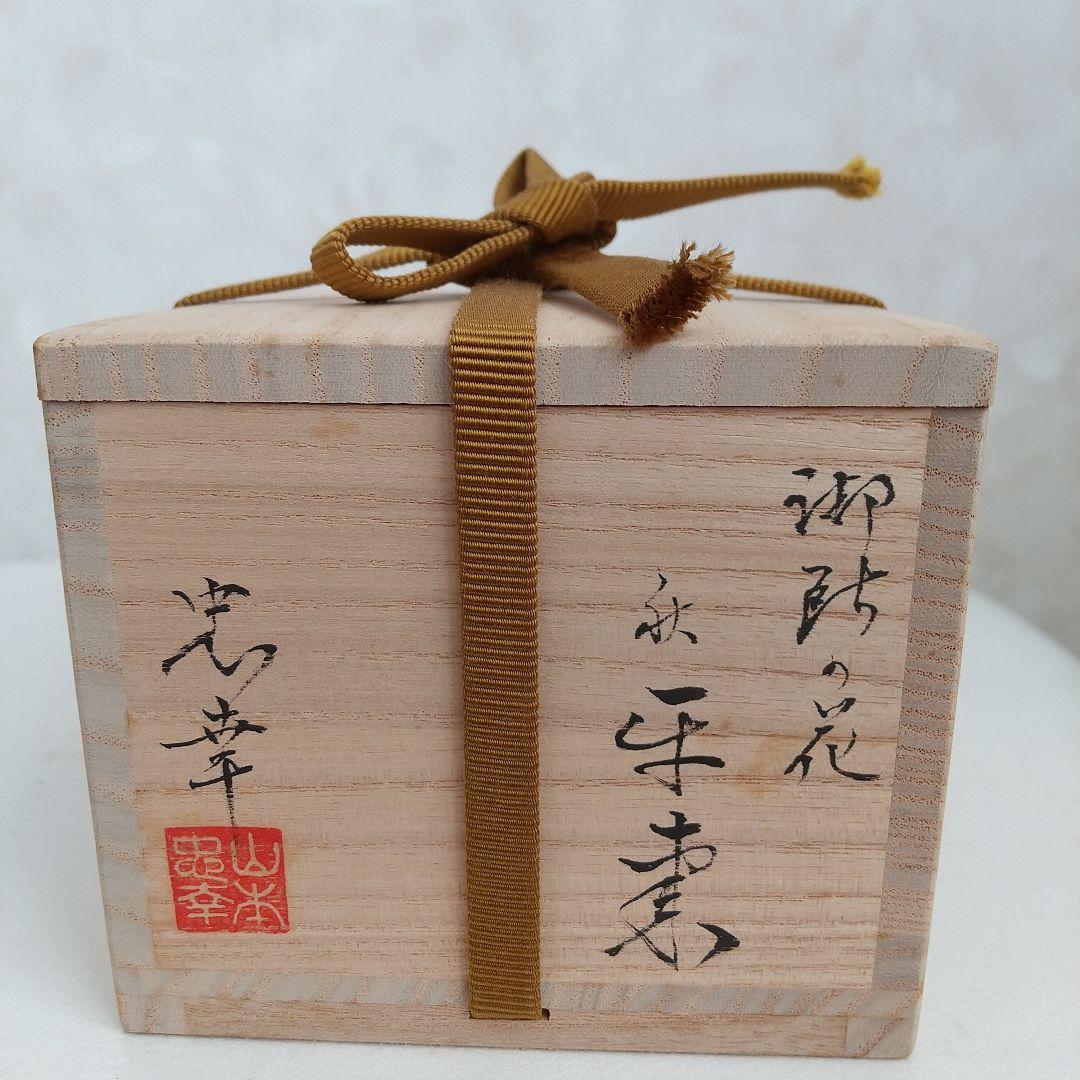 御所の花
秋 平棗
忠幸
山本
忠幸